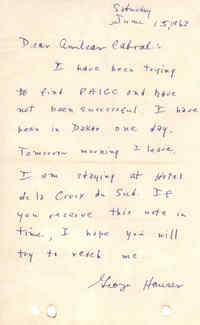 Saturday
June 15, 1962
Dear Amilcar Cabral:
I have been trying
to find PAIGC and have
not been successful. I have
been in Dakar one day.
Tomorrow morning I leave.
I am staying at Hotel
de la Croix du Sud. If
you receive this note in
time, I hope you will
try to reach me.
George Houser